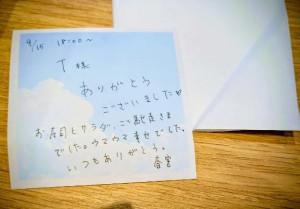 9/15 18:00~
T様
ありがとう
ございました
お寿司とサラダ、ご馳走さま
でした。ウマウマ幸せでした。
いつもありがとう。